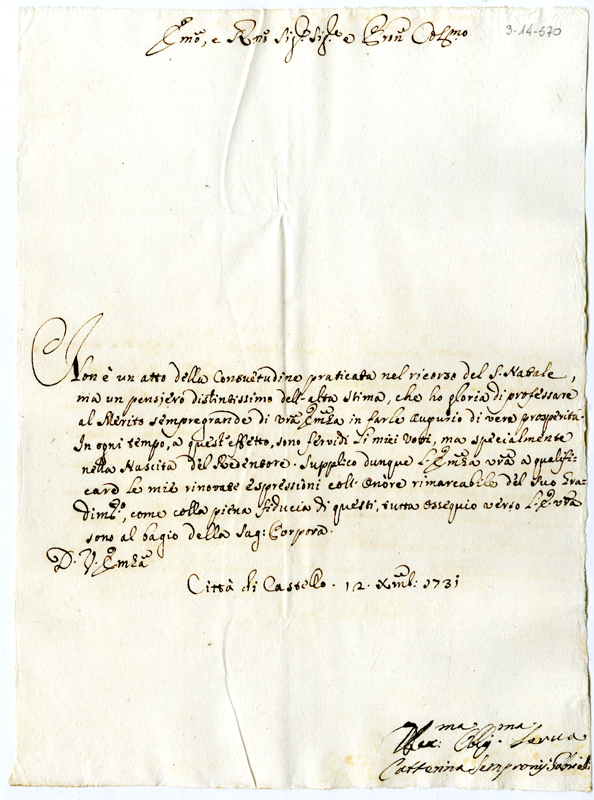 3-14-570
Emo, e Rmo Sig.r Sig.r e Prõn Colmo
Non è un atto della Consuetudine praticata nel ricorso del S. Natale,
ma un pensiero distintissimo dell'alta stima, che ho gloria di professare
al Merito sempregrande di vrã Emza in farle augurio di vere prosperità.
In ogni tempo, a quest'effetto, sono fervidi li miei Voti, ma specialmente
nella Nascita del Redentore. Supplico dunque L'Emza vrã a qualifi-
care le mie rinovate espressioni coll'onore rimarcabile del Suo Gra-
dimto, come colla piena fiducia di questi, tutta ossequio verso L'E. vrã
sono al bagio della Sag: Porpora.
D. V. Emza
Città di Castello. 12. Xmb: 1731
ma ma
Obbg. Serva
Catterina Sempronij